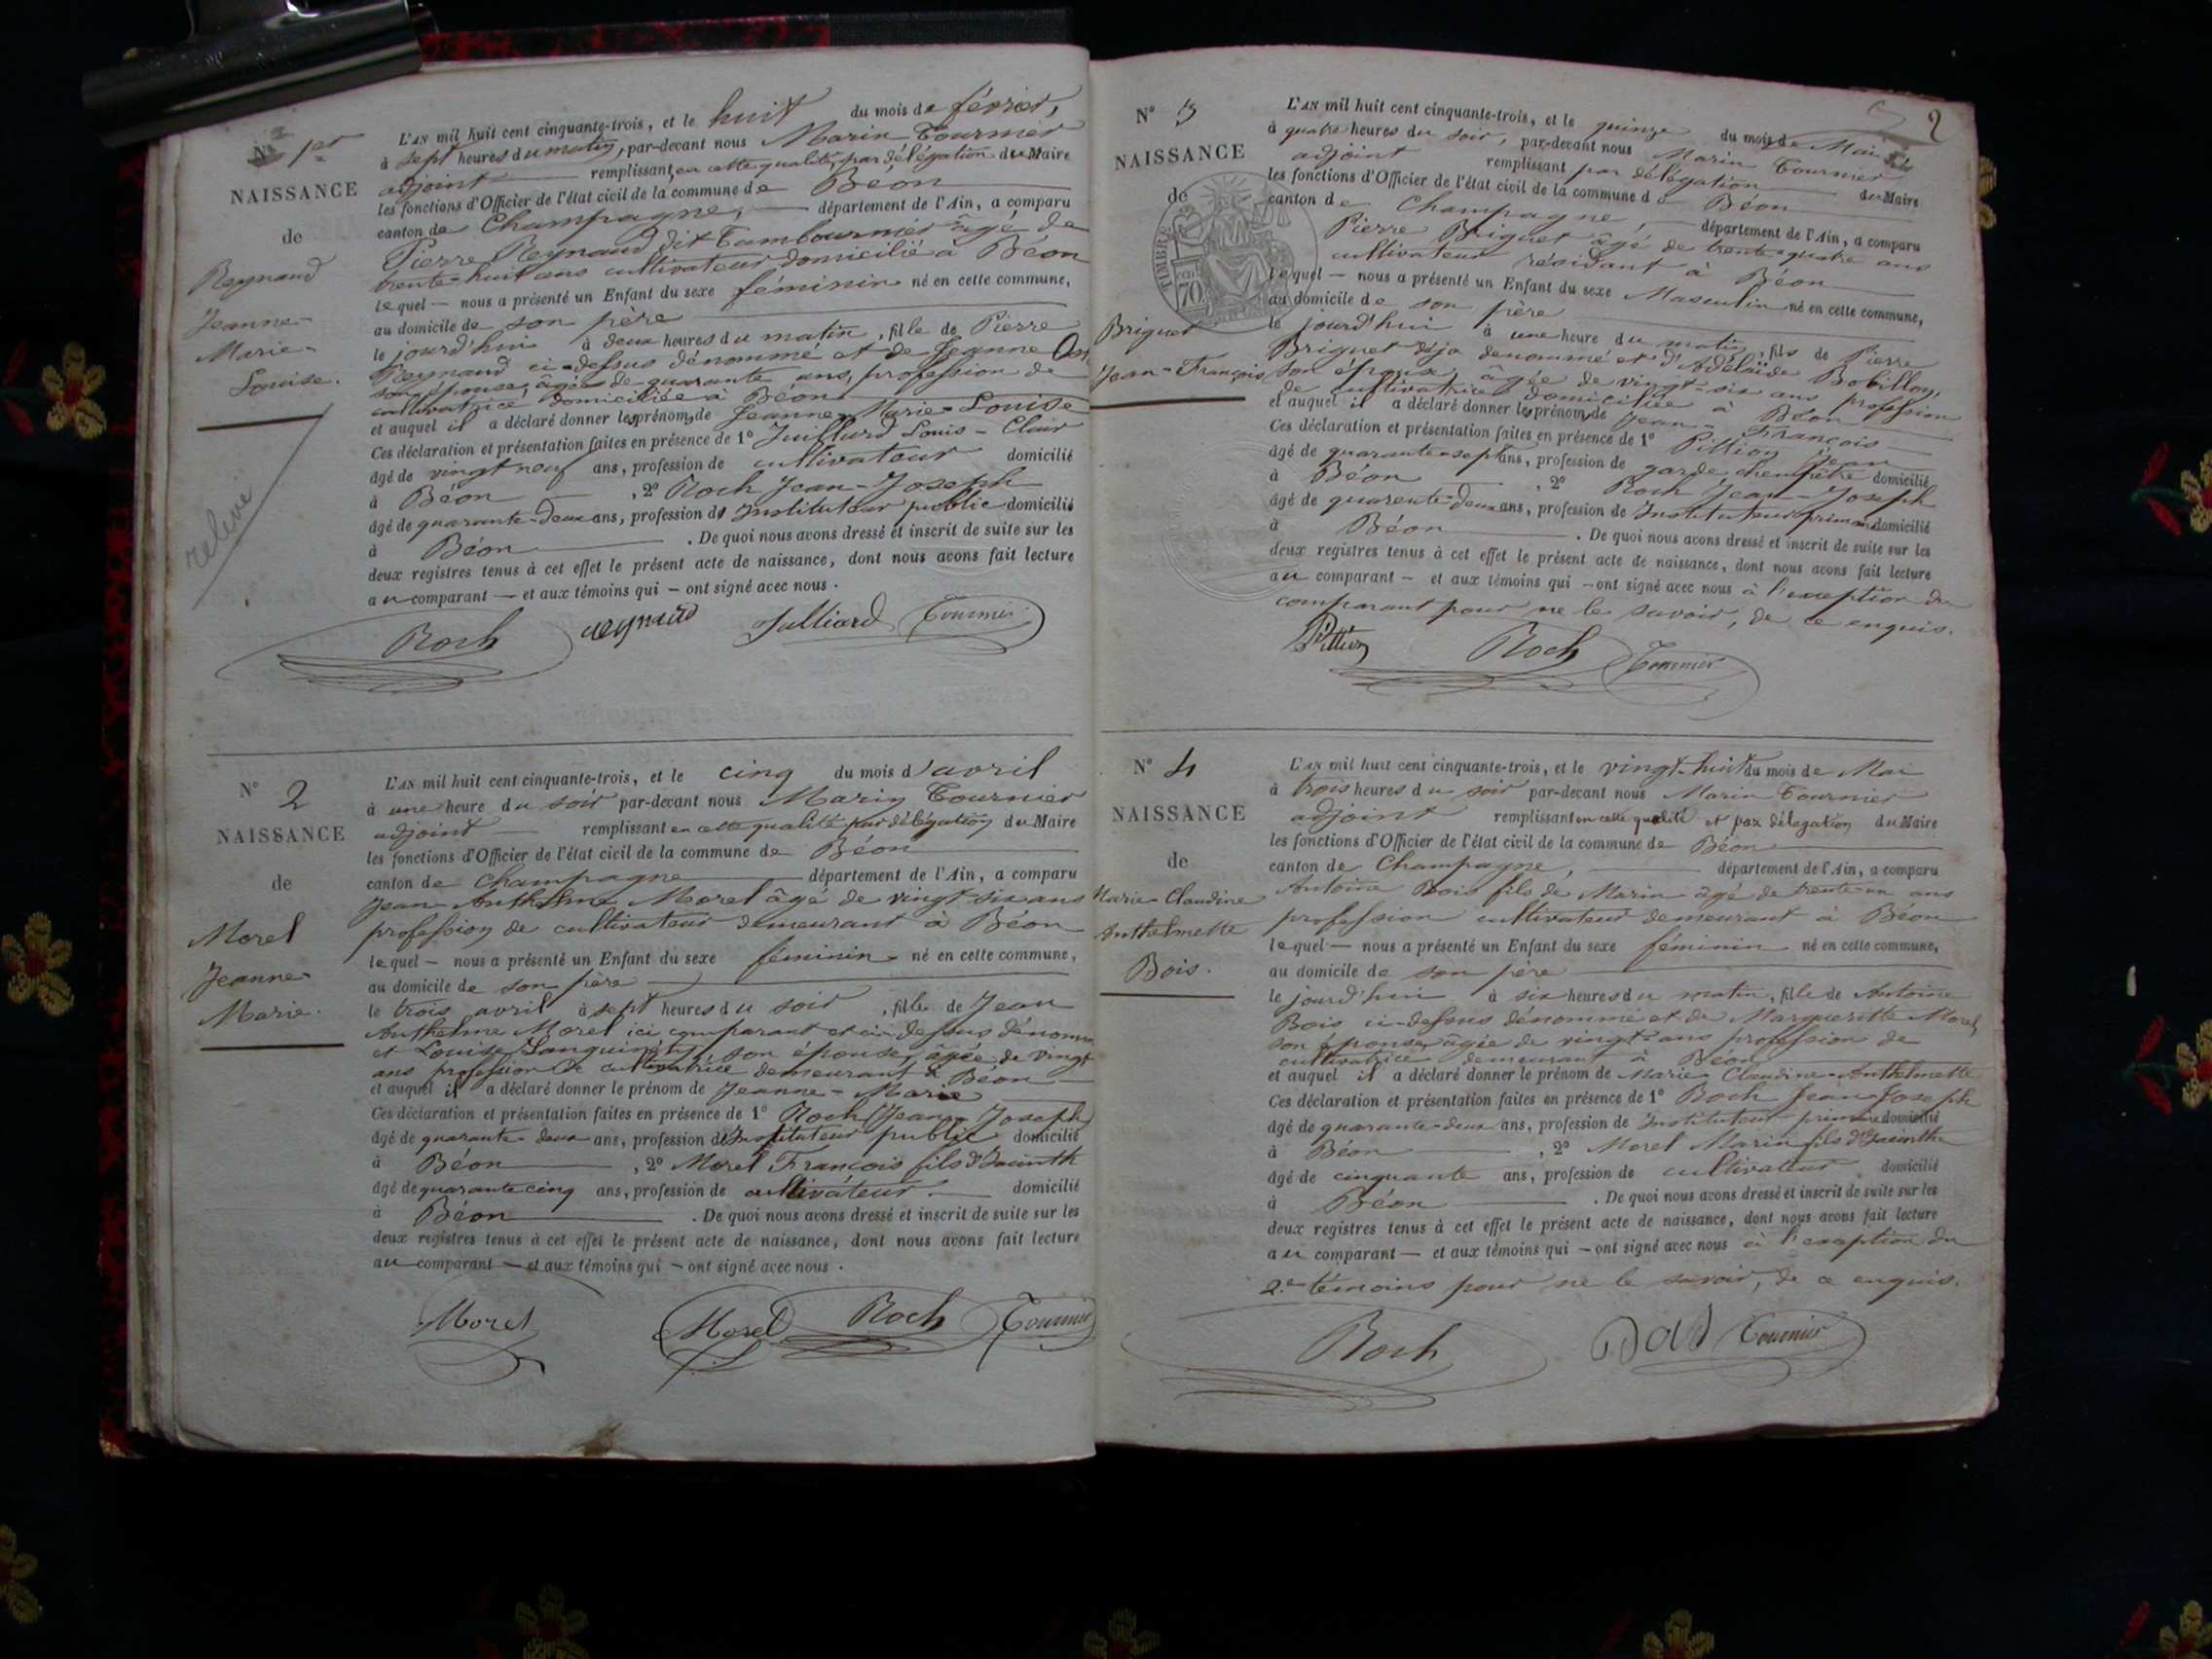 N° 1er
NAISSANCE
de
Reynaud
Jeanne-
Marie-
Louise.
relevé
L'AN mil huit cent cinquante-trois, et le huit du mois de février,
à sept heures du matin, par-devant nous Marin Tournier
adjoint — remplissant en cette qualité, par délégation du Maire
les fonctions d'Officier de l'état civil de la commune de Béon
canton de Champagne, — département de l'Ain, a comparu
Pierre Reynaud dit Tambournier âgé de
trente-huit ans cultivateur domicilié à Béon
lequel — nous a présenté un Enfant du sexe féminin né en cette commune,
au domicile de son père
le jourd'hui à deux heures du matin, fille de Pierre
Reynaud ci-dessus dénommé et de Jeanne
son épouse, âgée de quarante ans, profession de
cultivatrice domiciliée à Béon
et auquel il a déclaré donner les prénoms de Jeanne-Marie-Louise
Ces déclaration et présentation faites en présence de 1° Juilliard Louis-Clair
âgé de vingt neuf ans, profession de cultivateur domicilié
à Béon , 2° Roch Jean-Joseph
âgé de quarante-deux ans, profession d'Instituteur public domicilié
à Béon . De quoi nous avons dressé et inscrit de suite sur les
deux registres tenus à cet effet le présent acte de naissance, dont nous avons fait lecture
au comparant — et aux témoins qui — ont signé avec nous.
Roch Reynaud Julliard Tournier
N° 2
NAISSANCE
de
Morel
Jeanne-
Marie.
L'AN mil huit cent cinquante-trois, et le cinq du mois d'avril
à une heure du soir par-devant nous Marin Tournier
adjoint — remplissant en cette qualité par délégation du Maire
les fonctions d'Officier de l'état civil de la commune de Béon
canton de Champagne — département de l'Ain, a comparu
Jean-Anthelme Morel âgé de vingt-six ans
profession de cultivateur demeurant à Béon
lequel — nous a présenté un Enfant du sexe féminin né en cette commune,
au domicile de son père
le trois avril à sept heures du soir, fille de Jean
Anthelme Morel ici comparant et ci-dessus dénommé
et Louise son épouse, âgée de vingt
ans profession de cultivatrice demeurant à Béon
et auquel il a déclaré donner le prénom de Jeanne-Marie
Ces déclaration et présentation faites en présence de 1° Roch Jean-Joseph
âgé de quarante-deux ans, profession d'Instituteur public domicilié
à Béon , 2° Morel François fils d'Jacinth
âgé de quarante cinq ans, profession de cultivateur — domicilié
à Béon . De quoi nous avons dressé et inscrit de suite sur les
deux registres tenus à cet effet le présent acte de naissance, dont nous avons fait lecture
au comparant — et aux témoins qui — ont signé avec nous.
Morel Morel Roch Tournier
2
N° 3
NAISSANCE
de
TIMBRE
70
Briguet
Jean-François
L'AN mil huit cent cinquante-trois, et le quinze du mois de Mai
à quatre heures du soir, par-devant nous Marin Tournier
adjoint remplissant par délégation du Maire
les fonctions d'Officier de l'état civil de la commune de Béon
canton de Champagne, — département de l'Ain, a comparu
Pierre Briguet âgé de trente-quatre ans
cultivateur résidant à Béon
lequel — nous a présenté un Enfant du sexe Masculin né en cette commune,
au domicile de son père
le jourd'hui à une heure du matin, fils de Pierre
Briguet déja denommé et d'Adélaïde Bobillon,
son épouse, âgée de vingt-six ans profession
de cultivatrice domiciliée à Béon
et auquel il a déclaré donner les prénoms de Jean-François
Ces déclaration et présentation faites en présence de 1° Pillion Jean
âgé de quarante-sept ans, profession de garde champêtre domicilié
à Béon , 2° Roch Jean-Joseph
âgé de quarente-deux ans, profession de Instituteur primaire domicilié
à Béon . De quoi nous avons dressé et inscrit de suite sur les
deux registres tenus à cet effet le présent acte de naissance, dont nous avons fait lecture
au comparant — et aux témoins qui — ont signé avec nous à l'exception du
comparant pour ne le savoir, de ce enquis.
Pillion Roch Tournier
N° 4
NAISSANCE
de
Marie-Claudine
Anthelmette
Bois.
L'AN mil huit cent cinquante-trois, et le vingt-huit du mois de Mai
à trois heures du soir par-devant nous Marin Tournier
adjoint remplissant en cette qualité et par délagation du Maire
les fonctions d'Officier de l'état civil de la commune de Béon
canton de Champagne, — département de l'Ain, a comparu
Antoine Bois fils de Marin âgé de trente-un ans
profession cultivateur demeurant à Béon
lequel — nous a présenté un Enfant du sexe féminin né en cette commune,
au domicile de son père
le jourd'hui à six heures du matin, fille de Antoine
Bois ci-dessus dénommé et de Margueritte Morel
son épouse, agée de vingt-ans profession de
cultivatrice demeurant à Béon
et auquel il a déclaré donner le prénom de Marie-Claudine-Anthelmette
Ces déclaration et présentation faites en présence de 1° Roch Jean-Joseph
âgé de quarante-deux ans, profession de Instituteur primaire domicilié
à Béon , 2° Morel Marin fils d'Jacinthe
âgé de cinquante ans, profession de cultivateur domicilié
à Béon . De quoi nous avons dressé et inscrit de suite sur les
deux registres tenus à cet effet le présent acte de naissance, dont nous avons fait lecture
au comparant — et aux témoins qui — ont signé avec nous à l'exception du
2e témoins pour ne le savoir, de ce enquis.
Roch Tournier